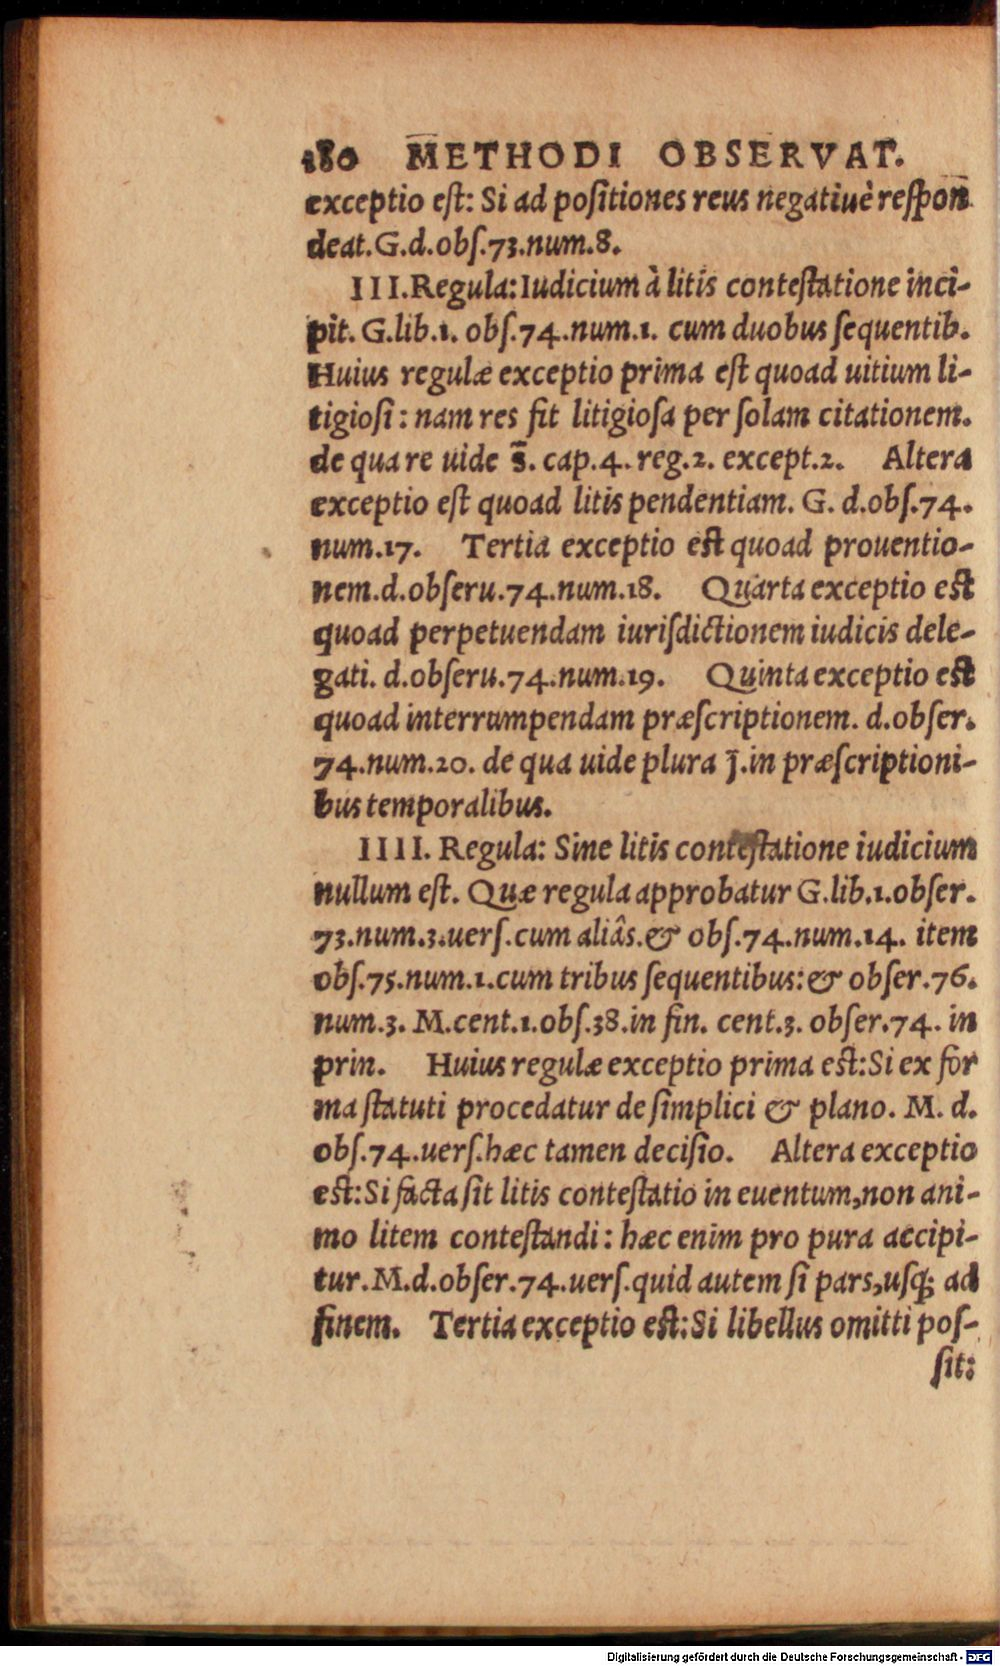 180 METHODI OBSERVAT.
exceptio eſt: Si ad poſitiones reus negatiuè reſpon
deat. G. d. obſ. 73. num. 8.
III. Regula: Iudicium à litis conteſtatione inci-
pit. G. lib. 1. obſ. 74. num. 1. cum duobus ſequentib.
Huius regulæ exceptio prima eſt quoad uitium li-
tigioſi: nam res fit litigioſa per ſolam citationem.
de qua re uide s̄. cap. 4. reg. 2. except. 2. Altera
exceptio eſt quoad litis pendentiam. G. d. obſ. 74.
num. 17. Tertia exceptio eſt quoad prouentio-
nem. d. obſeru. 74. num. 18. Quarta exceptio eſt
quoad perpetuendam iuriſdictionem iudicis dele-
gati. d. obſeru. 74. num. 19. Quinta exceptio eſt
quoad interrumpendam præſcriptionem. d. obſer.
74. num. 20. de qua uide plura j̄. in præſcriptioni-
bus temporalibus.
IIII. Regula: Sine litis conteſtatione iudicium
nullum eſt. Quæ regula approbatur G. lib. 1. obſer.
73. num. 3. uerſ. cum aliâs. & obſ. 74. num. 14. item
obſ. 75. num. 1. cum tribus ſequentibus: & obſer. 76.
num. 3. M. cent. 1. obſ. 38. in fin. cent. 3. obſer. 74. in
prin. Huius regulæ exceptio prima eſt: Si ex for
ma ſtatuti procedatur de ſimplici & plano. M. d.
obſ. 74. uerſ. hæc tamen deciſio. Altera exceptio
eſt: Si facta ſit litis conteſtatio in euentum, non ani-
mo litem conteſtandi: hæc enim pro pura accipi-
tur. M. d. obſer. 74. uerſ. quid autem ſi pars, uſq; ad
finem. Tertia exceptio eſt: Si libellus omitti poſ-
ſit:
Digitalisierung gefördert durch die Deutsche Forschungsgemeinschaft - DFG